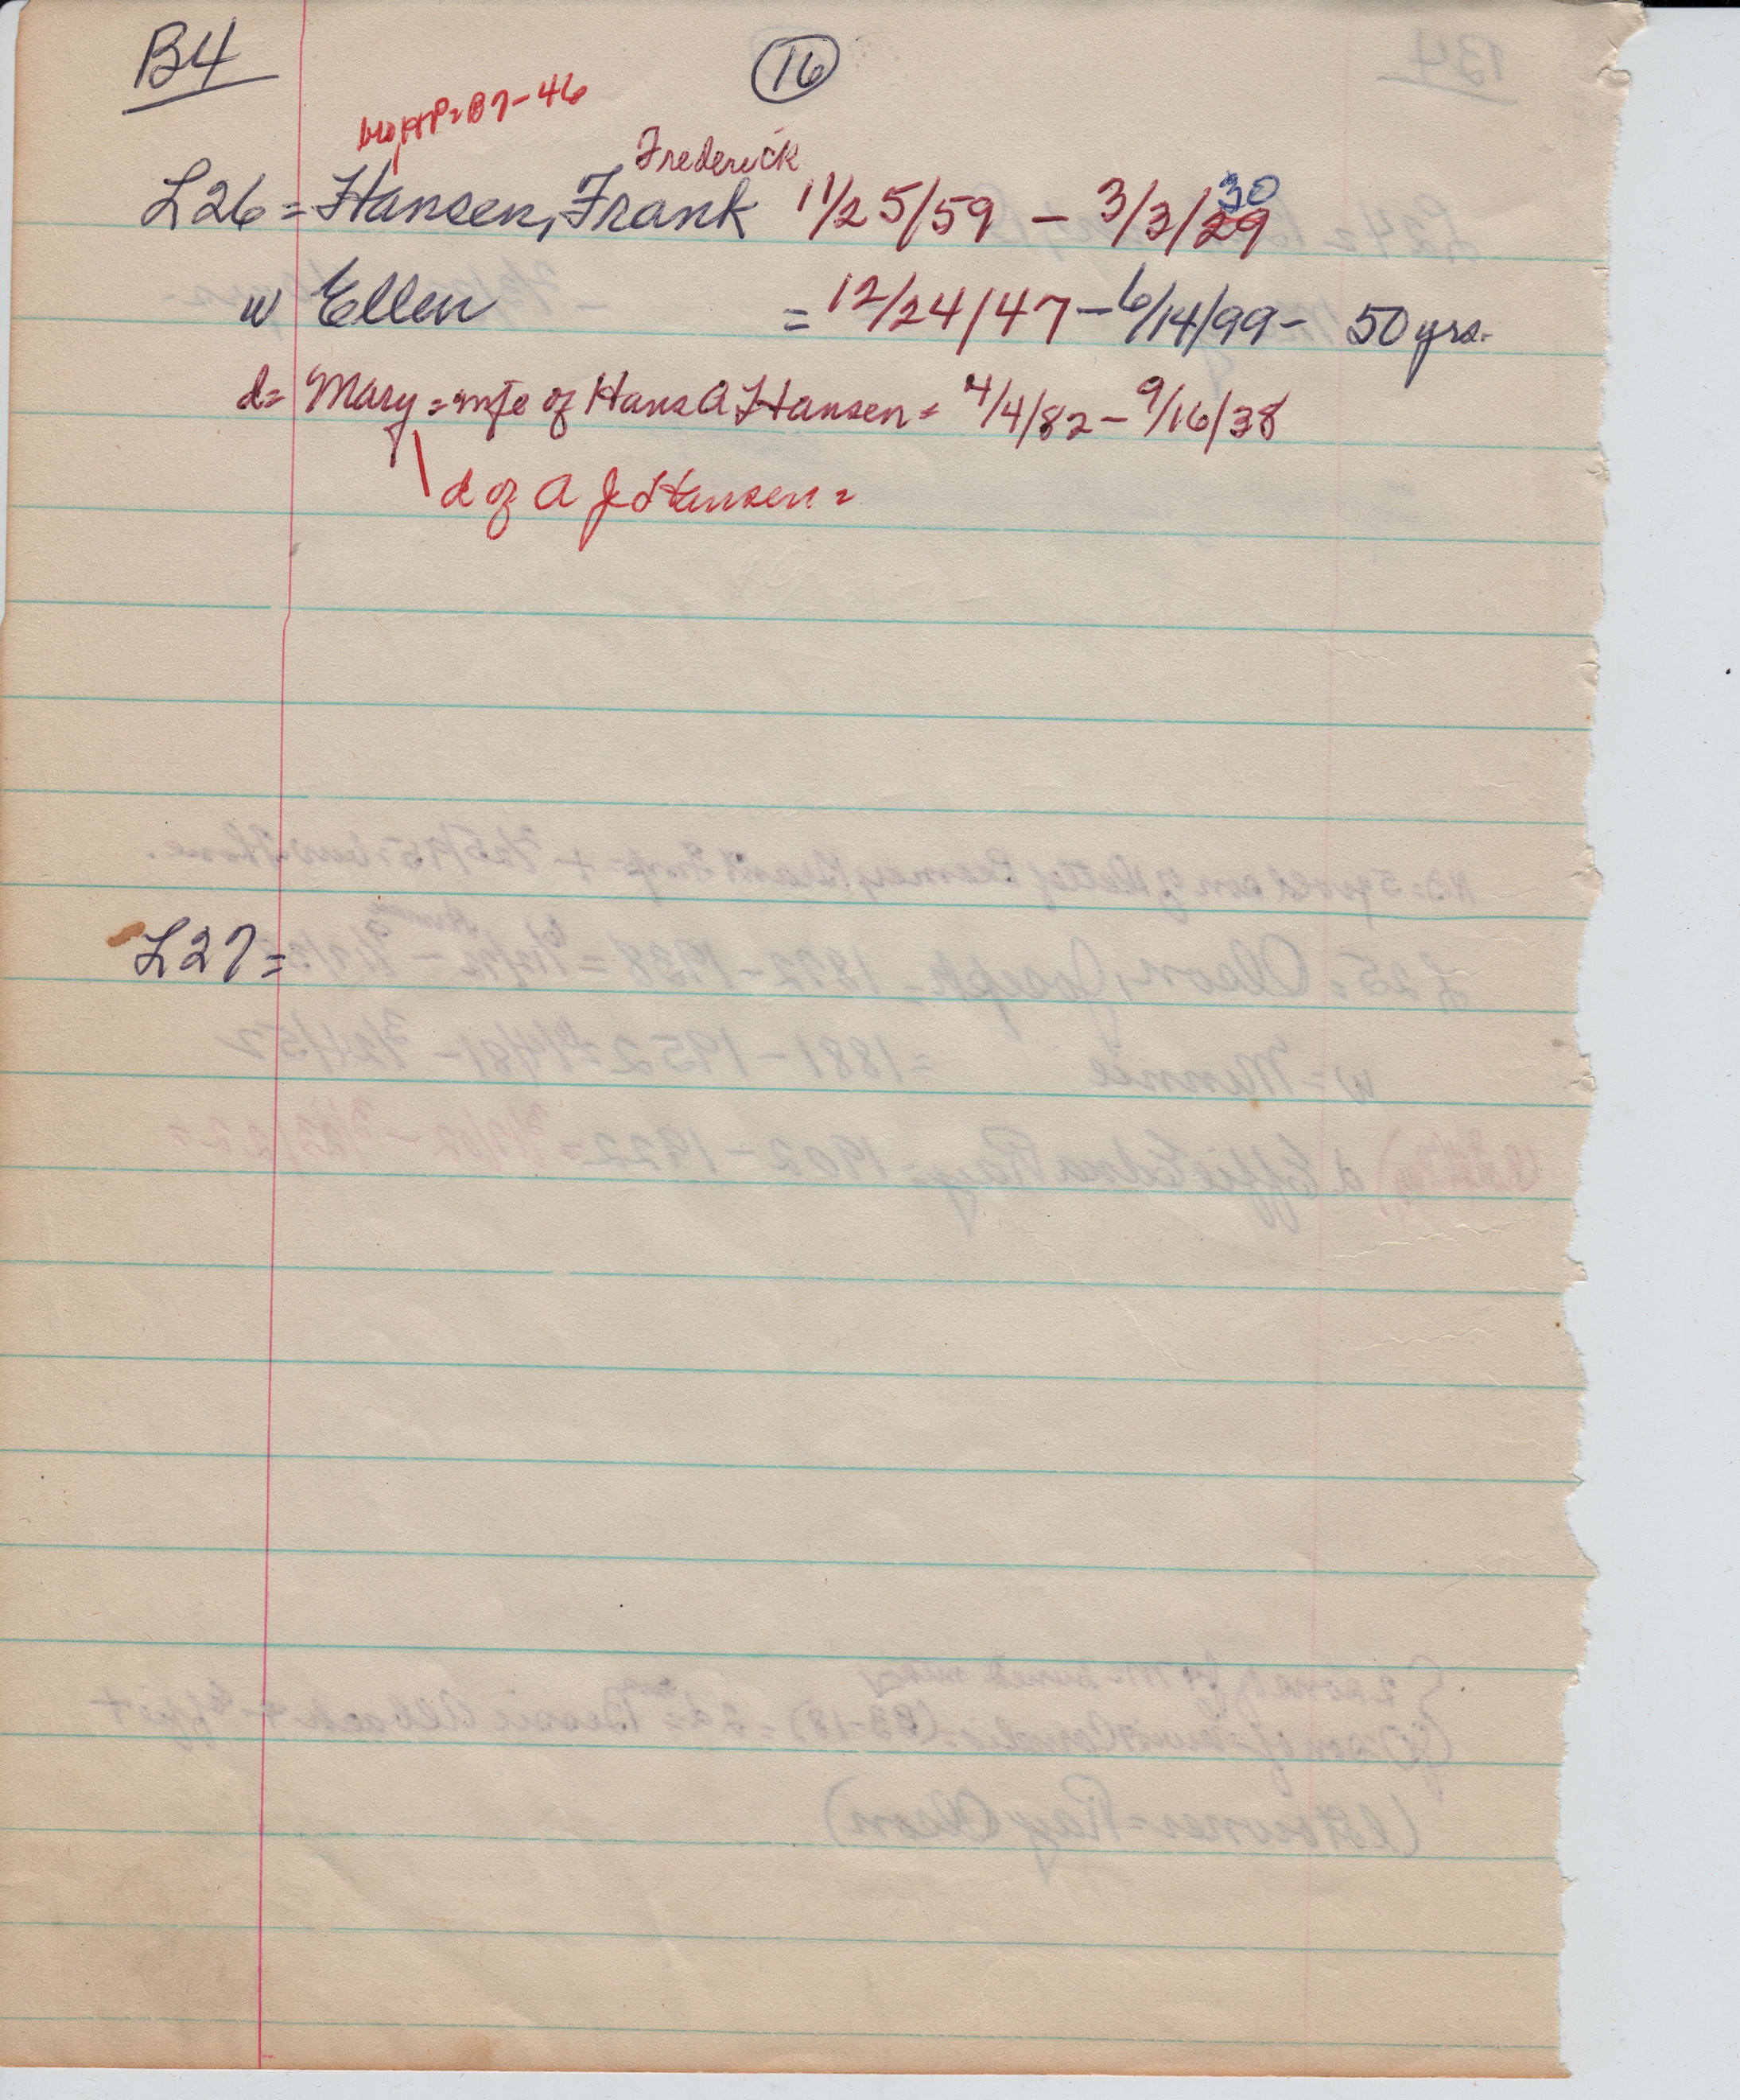 B4
16
bro, H P = B7-46
Frederick
L26 = Hansen, Frank 11/25/59 - 3/3/29 30
w Ellen = 12/24/47 - 6/14/99 - 50 yrs.
d = Mary = wife of Hans A Hansen = 4/4/82 - 9/16/38
d of A J Hansen =
L27 =